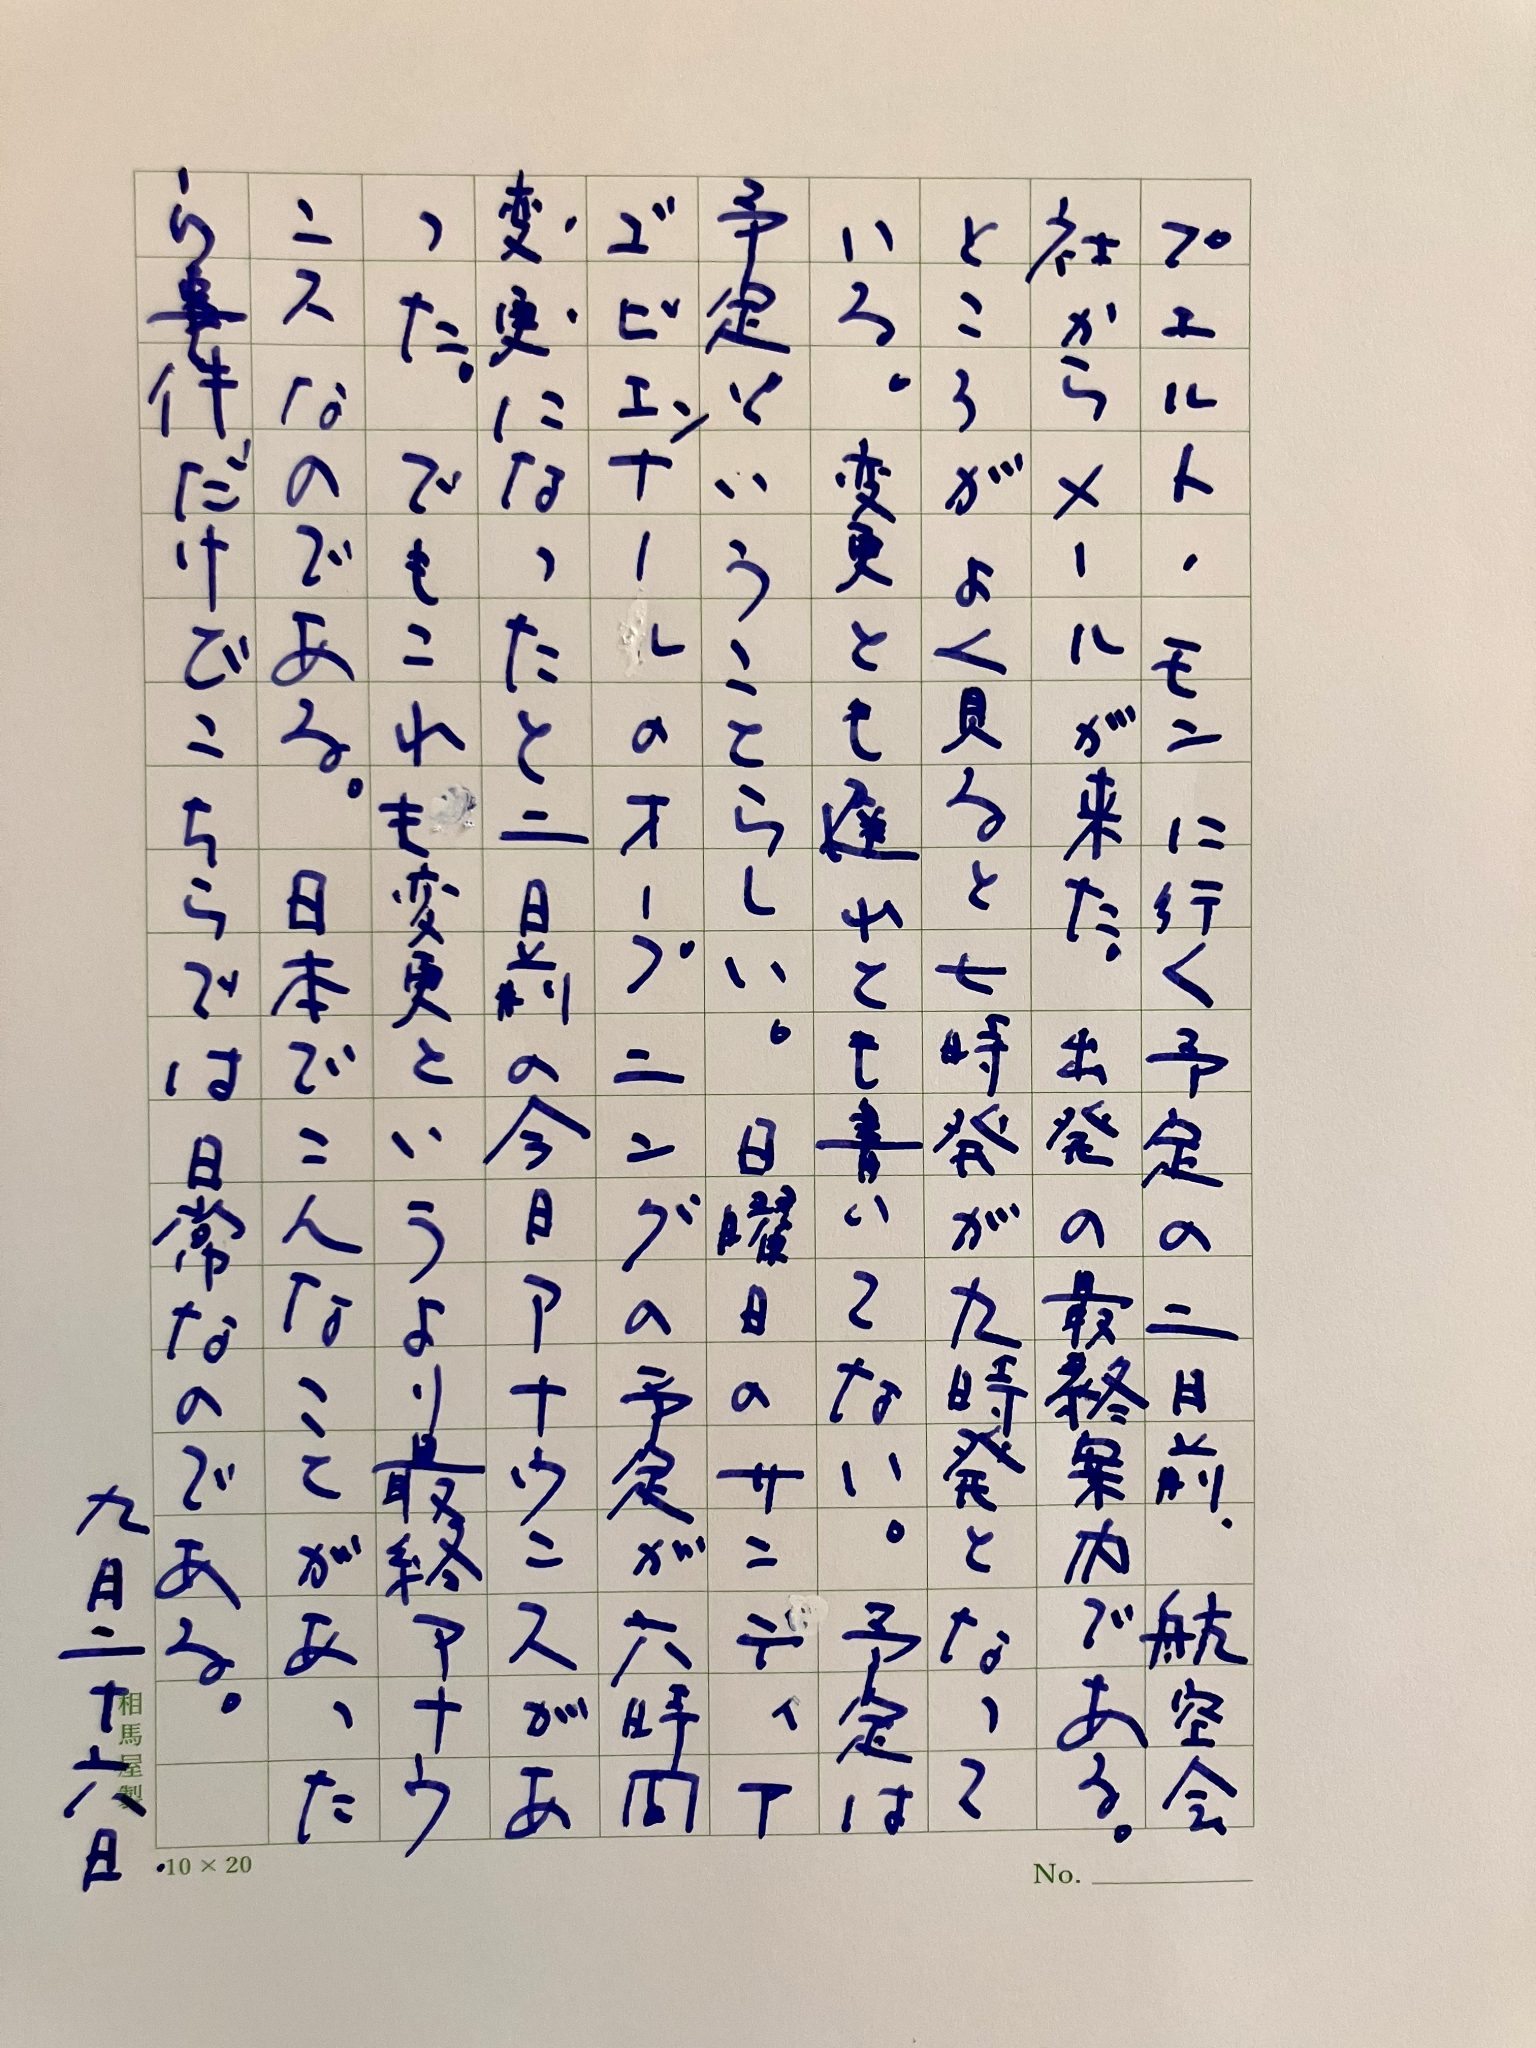 プエルト・モンに行く予定の二日前、航空会
社からメールが来た。出発の最終案内である。
ところがよく見ると七時発が九時発となって
いる。変更とも遅れとも書いてない。予定は
予定ということらしい。日曜日のサンティア
ゴビエンナーレのオープニングの予定が六時間
変更になったと二日前の今日アナウンスがあ
った。でもこれも変更というより最終アナウ
ンスなのである。日本でこんなことがあった
ら事件だけどこちらでは日常なのである。
九月二十六日
相馬屋製
10×20
No.